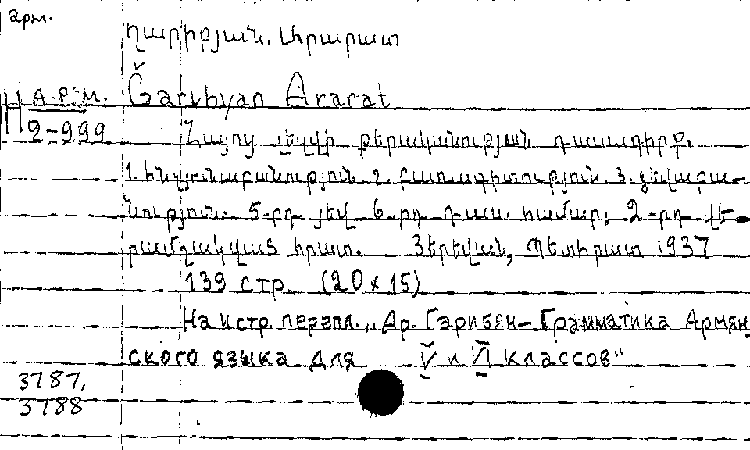 арм.
Ղարիբյան. Արարատ
Н А.Р.М. Ǧaribyan Ararat
2-999 Հայոց լեզվի քերականության դասագիրք.
1. հնչյունաբանություն. 2. բառագիտություն. 3. ձևվաբա-
նություն. 5-րդ յեվ 6-րդ դաս. համար; 2-րդ վե-
րամշակված հրատ. Յերեվան, Պետհրատ 1937
139 стр. (20 x 15)
На и стр. перепл. „Ар. Гарибян - Грамматика Армян
ского языка для V и VI классов“
3787,
3788